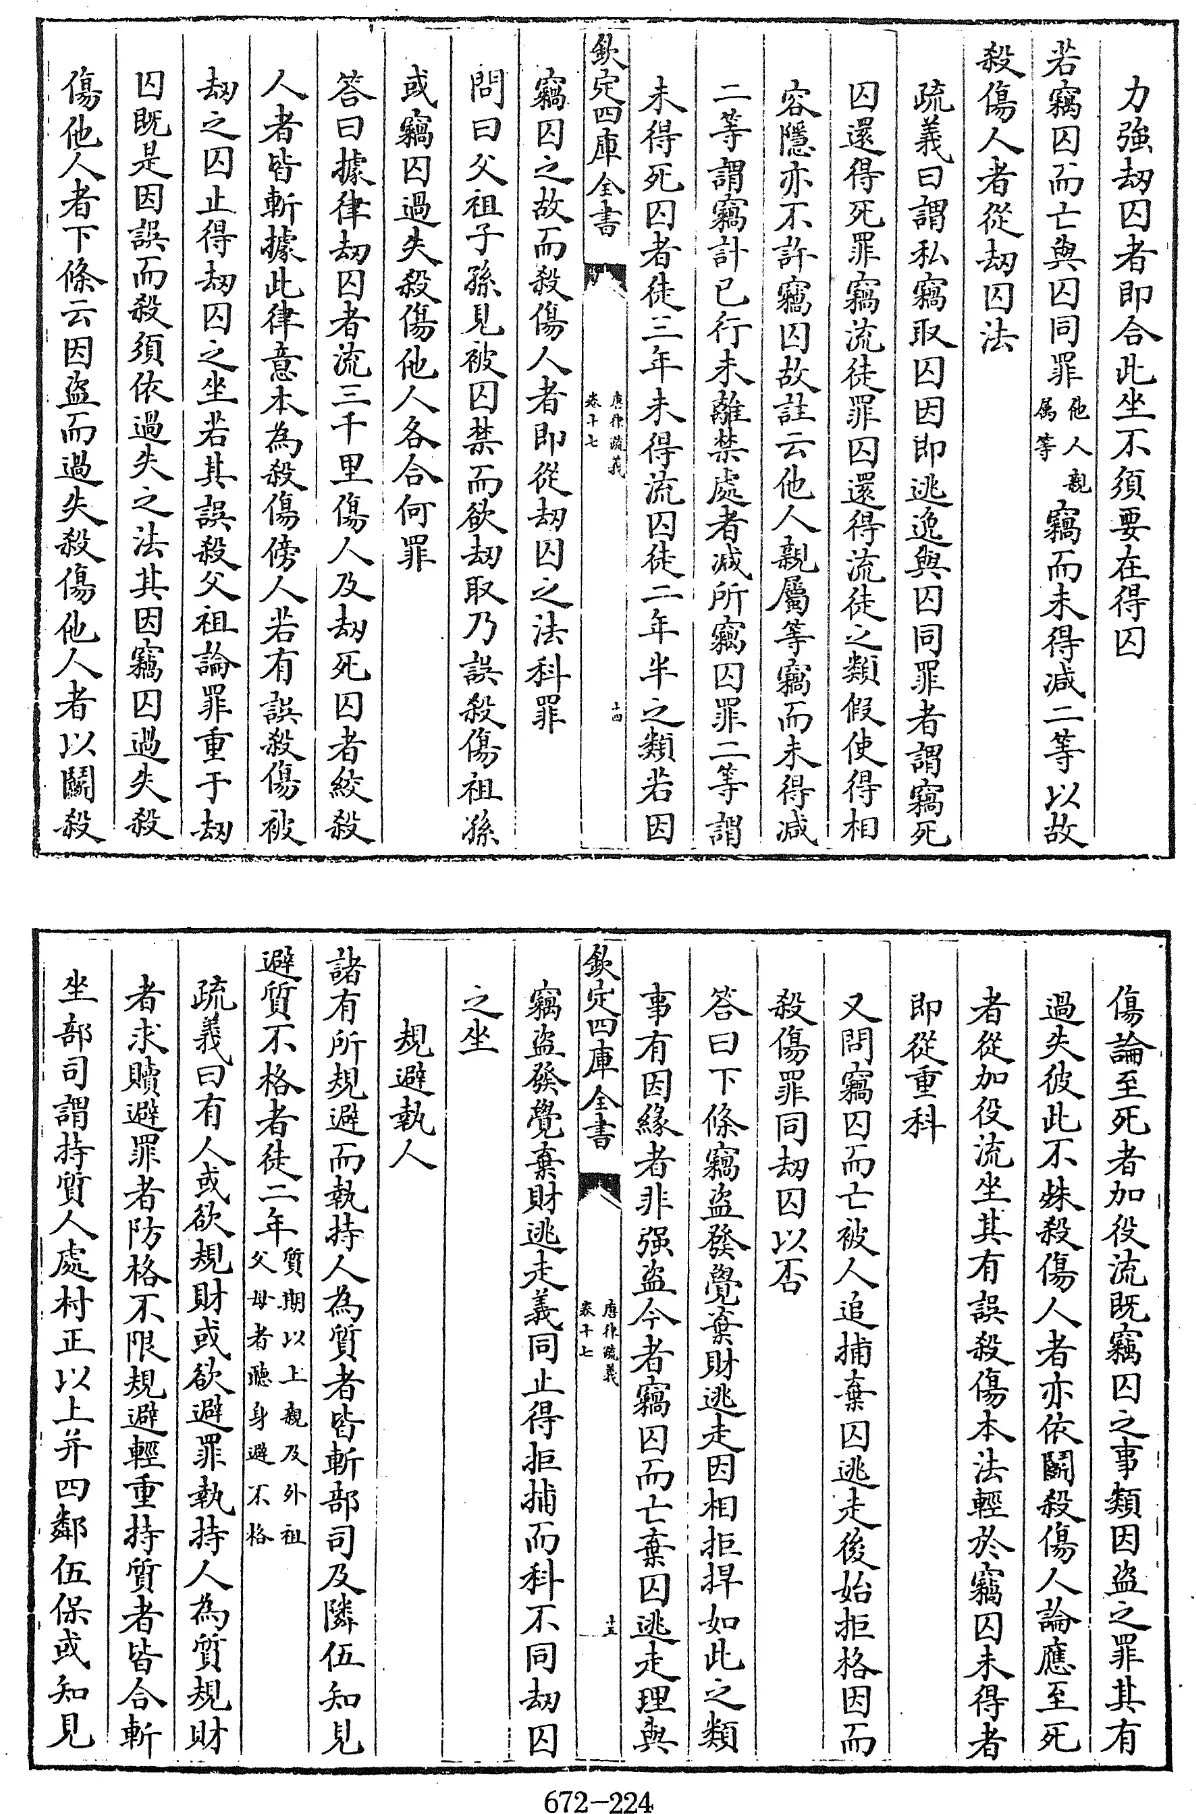 力強刼囚者即合此坐不須要在得囚
若竊囚而亡與囚同罪他人親屬等竊而未得减二等以故
殺傷人者從刼囚法
疏義曰謂私竊取囚因即逃逸與囚同罪者謂竊死
囚還得死罪竊流徒罪囚還得流徒之類假使得相
容隱亦不許竊囚故註云他人親屬等竊而未得减
二等謂竊計已行未離禁處者减所竊囚罪二等謂
未得死囚者徒三年未得流囚徒二年半之類若因
欽定四庫全書 唐律疏義 卷十七 十四
竊囚之故而殺傷人者即從刼囚之法科罪
問曰父祖子孫見被囚禁而欲刼取乃誤殺傷祖孫
或竊囚過失殺傷他人各合何罪
答曰據律刼囚者流三千里傷人及刼死囚者絞殺
人者皆斬據此律意本為殺傷傍人若有誤殺傷被
刼之囚止得刼囚之坐若其誤殺父祖論罪重于刼
囚既是因誤而殺須依過失之法其因竊囚過失殺
傷他人者下條云因盗而過失殺傷他人者以鬬殺
傷論至死者加役流既竊囚之事類因盗之罪其有
過失彼此不殊殺傷人者亦依鬬殺傷人論應至死
者從加役流坐其有誤殺傷本法輕於竊囚未得者
即從重科
又問竊囚而亡被人追捕棄囚逃走後始拒格因而
殺傷罪同刼囚以否
答曰下條竊盗發覺棄財逃走因相拒捍如此之類
事有因緣者非强盗今者竊囚而亡棄囚逃走理與
欽定四庫全書 唐律疏義 卷十七 十五
竊盗發覺棄財逃走義同止得拒捕而科不同刼囚
之坐
規避執人
諸有所規避而執持人為質者皆斬部司及隣伍知見
避質不格者徒二年質期以上親及外祖父母者聽身避不格
疏義曰有人或欲規財或欲避罪執持人為質規財
者求贖避罪者防格不限規避輕重持質者皆合斬
坐部司謂持質人處村正以上并四鄰伍保或知見
672-224